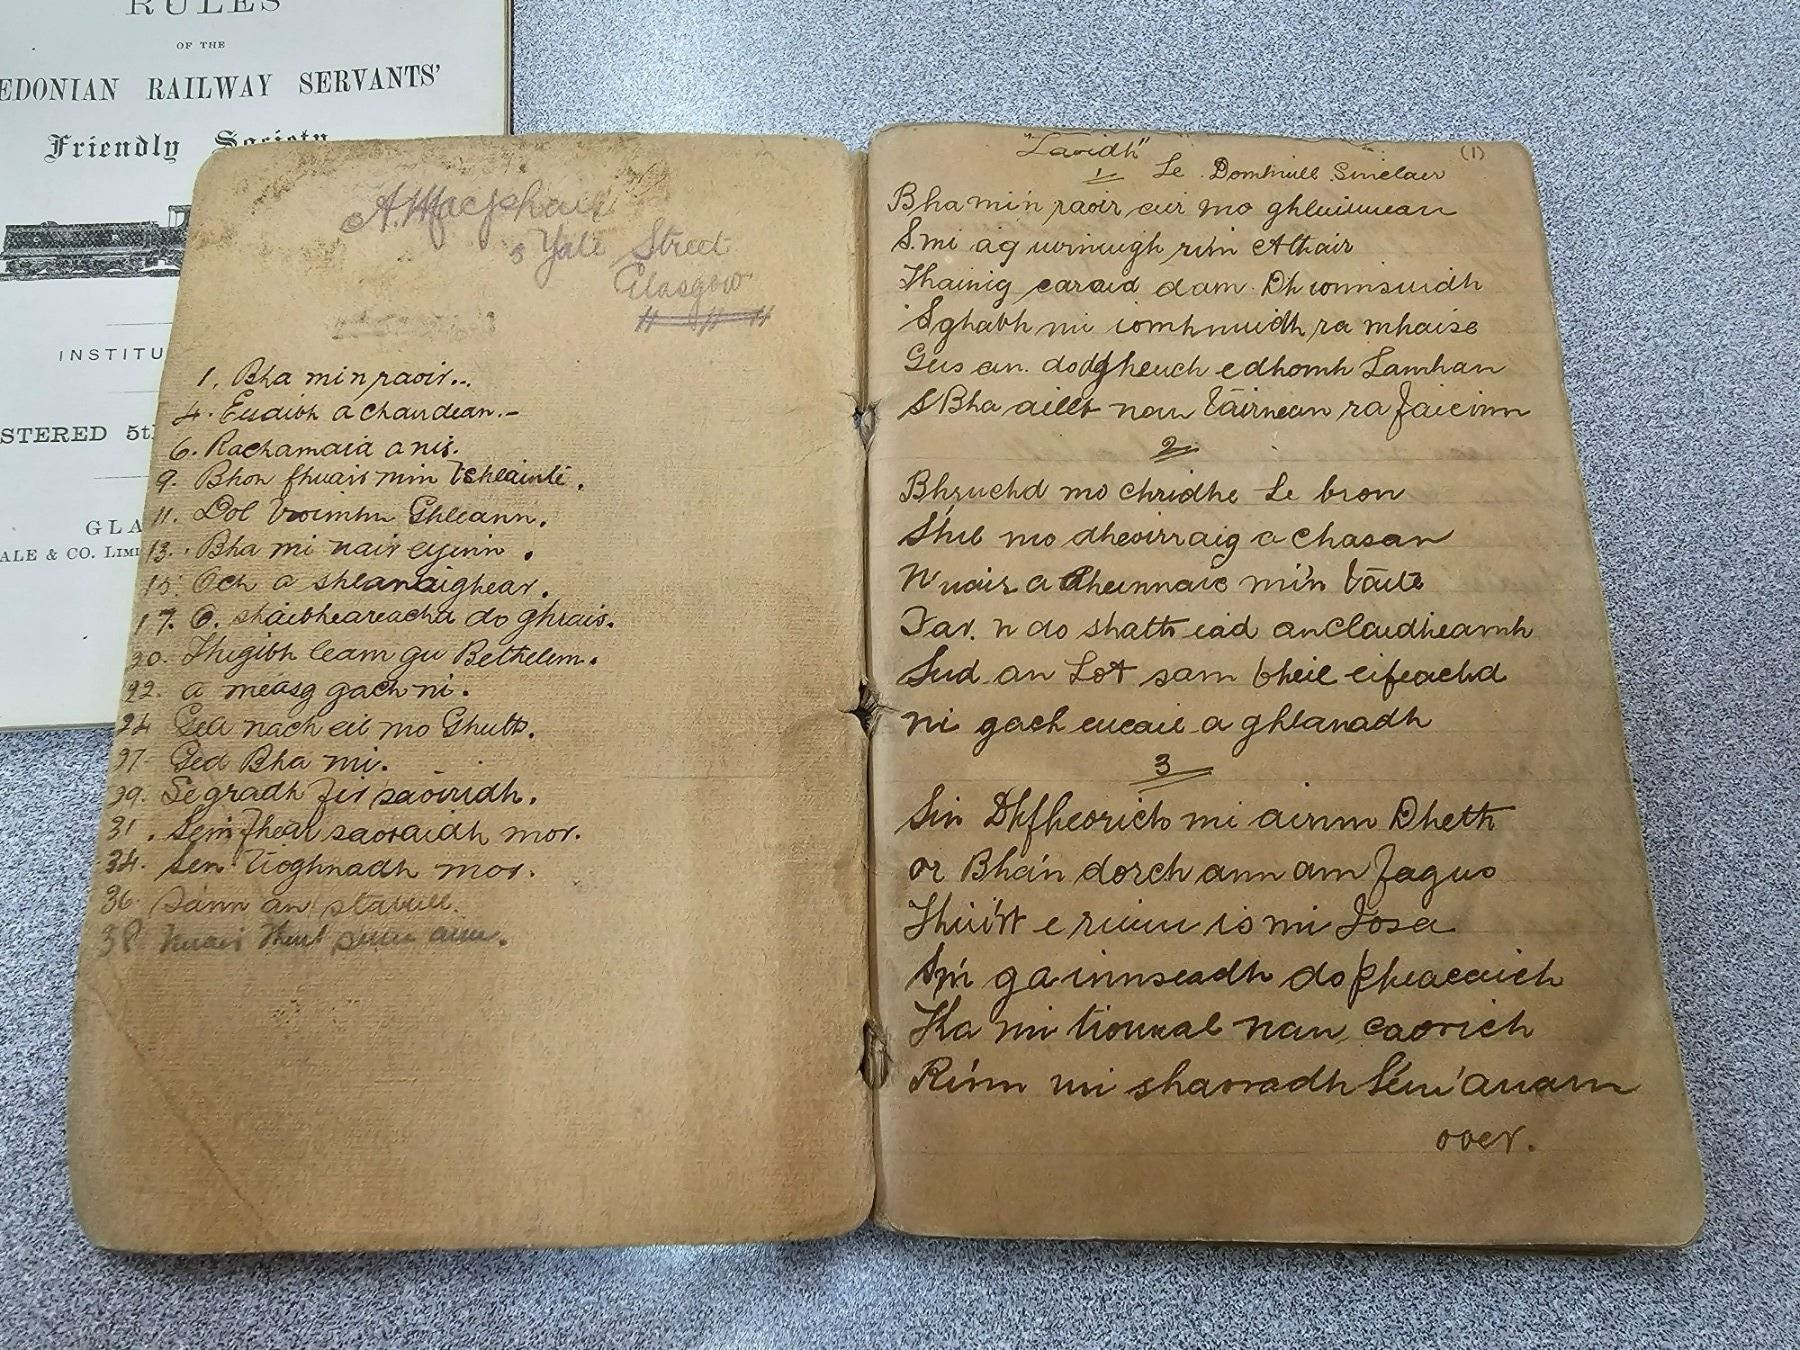 RULES
OF THE
EDONIAN RAILWAY SERVANTS'
Friendly Society
INSTITU
STERED 5t
GLA
ALE & CO. LIMI
A. Macphail
5 Yate Street
Glasgow
1. Bha min raoir...
4. Eisdibh a chairdean.-
6. Rachamaid a nis.
9. Bhon fhuair min tshlainte.
11. Dol troimhn Ghleann.
13. Bha mi nair eiginn.
15. Och a shlanaighear.
17. O. shaibheareachd do ghrais.
20. Thigibh leam gu Bethelem.
22. a measg gach ni.
24. Ged nach eil mo Ghuth.
27. Ged Bha mi.
29. Se gradh fir saoiridh.
31. Sem fhear saoraidh mor.
34. Sen tioghnadh mor.
36. ann an stabull.
38.
"Laoidh" (1)
1 Le Domhnull Sinclair
Bha mi'n raoir air mo ghluinnean
S. mi ag urnuigh ri'n Athair
Thainig caraid dam Dh ionnsuidh
S ghabh mi iomhnuidh ra mhaise
Gus an do dheuch e dhomh Lamhan
S Bha aillt nan tairnean ra faicinn
2
Bhruchd mo chridhe Le bron
Shil mo dheoirraig a chasan
N'uair a dhunnaic mi'n taibh
Far. n do shath iad an Claidheamh
Sud an Lot sam bheil eifeachd
ni gach eucail a ghlanadh
3
Sin Dhfheorich mi ainm Dheth
or Bha'n dorch ann am fagus
Thuirt e rium is mi Iosa
S'mi ga innseadh do pheacaich
Tha mi tionnal nan caorich
Rinn mi shaoradh Le'm' anam
over.